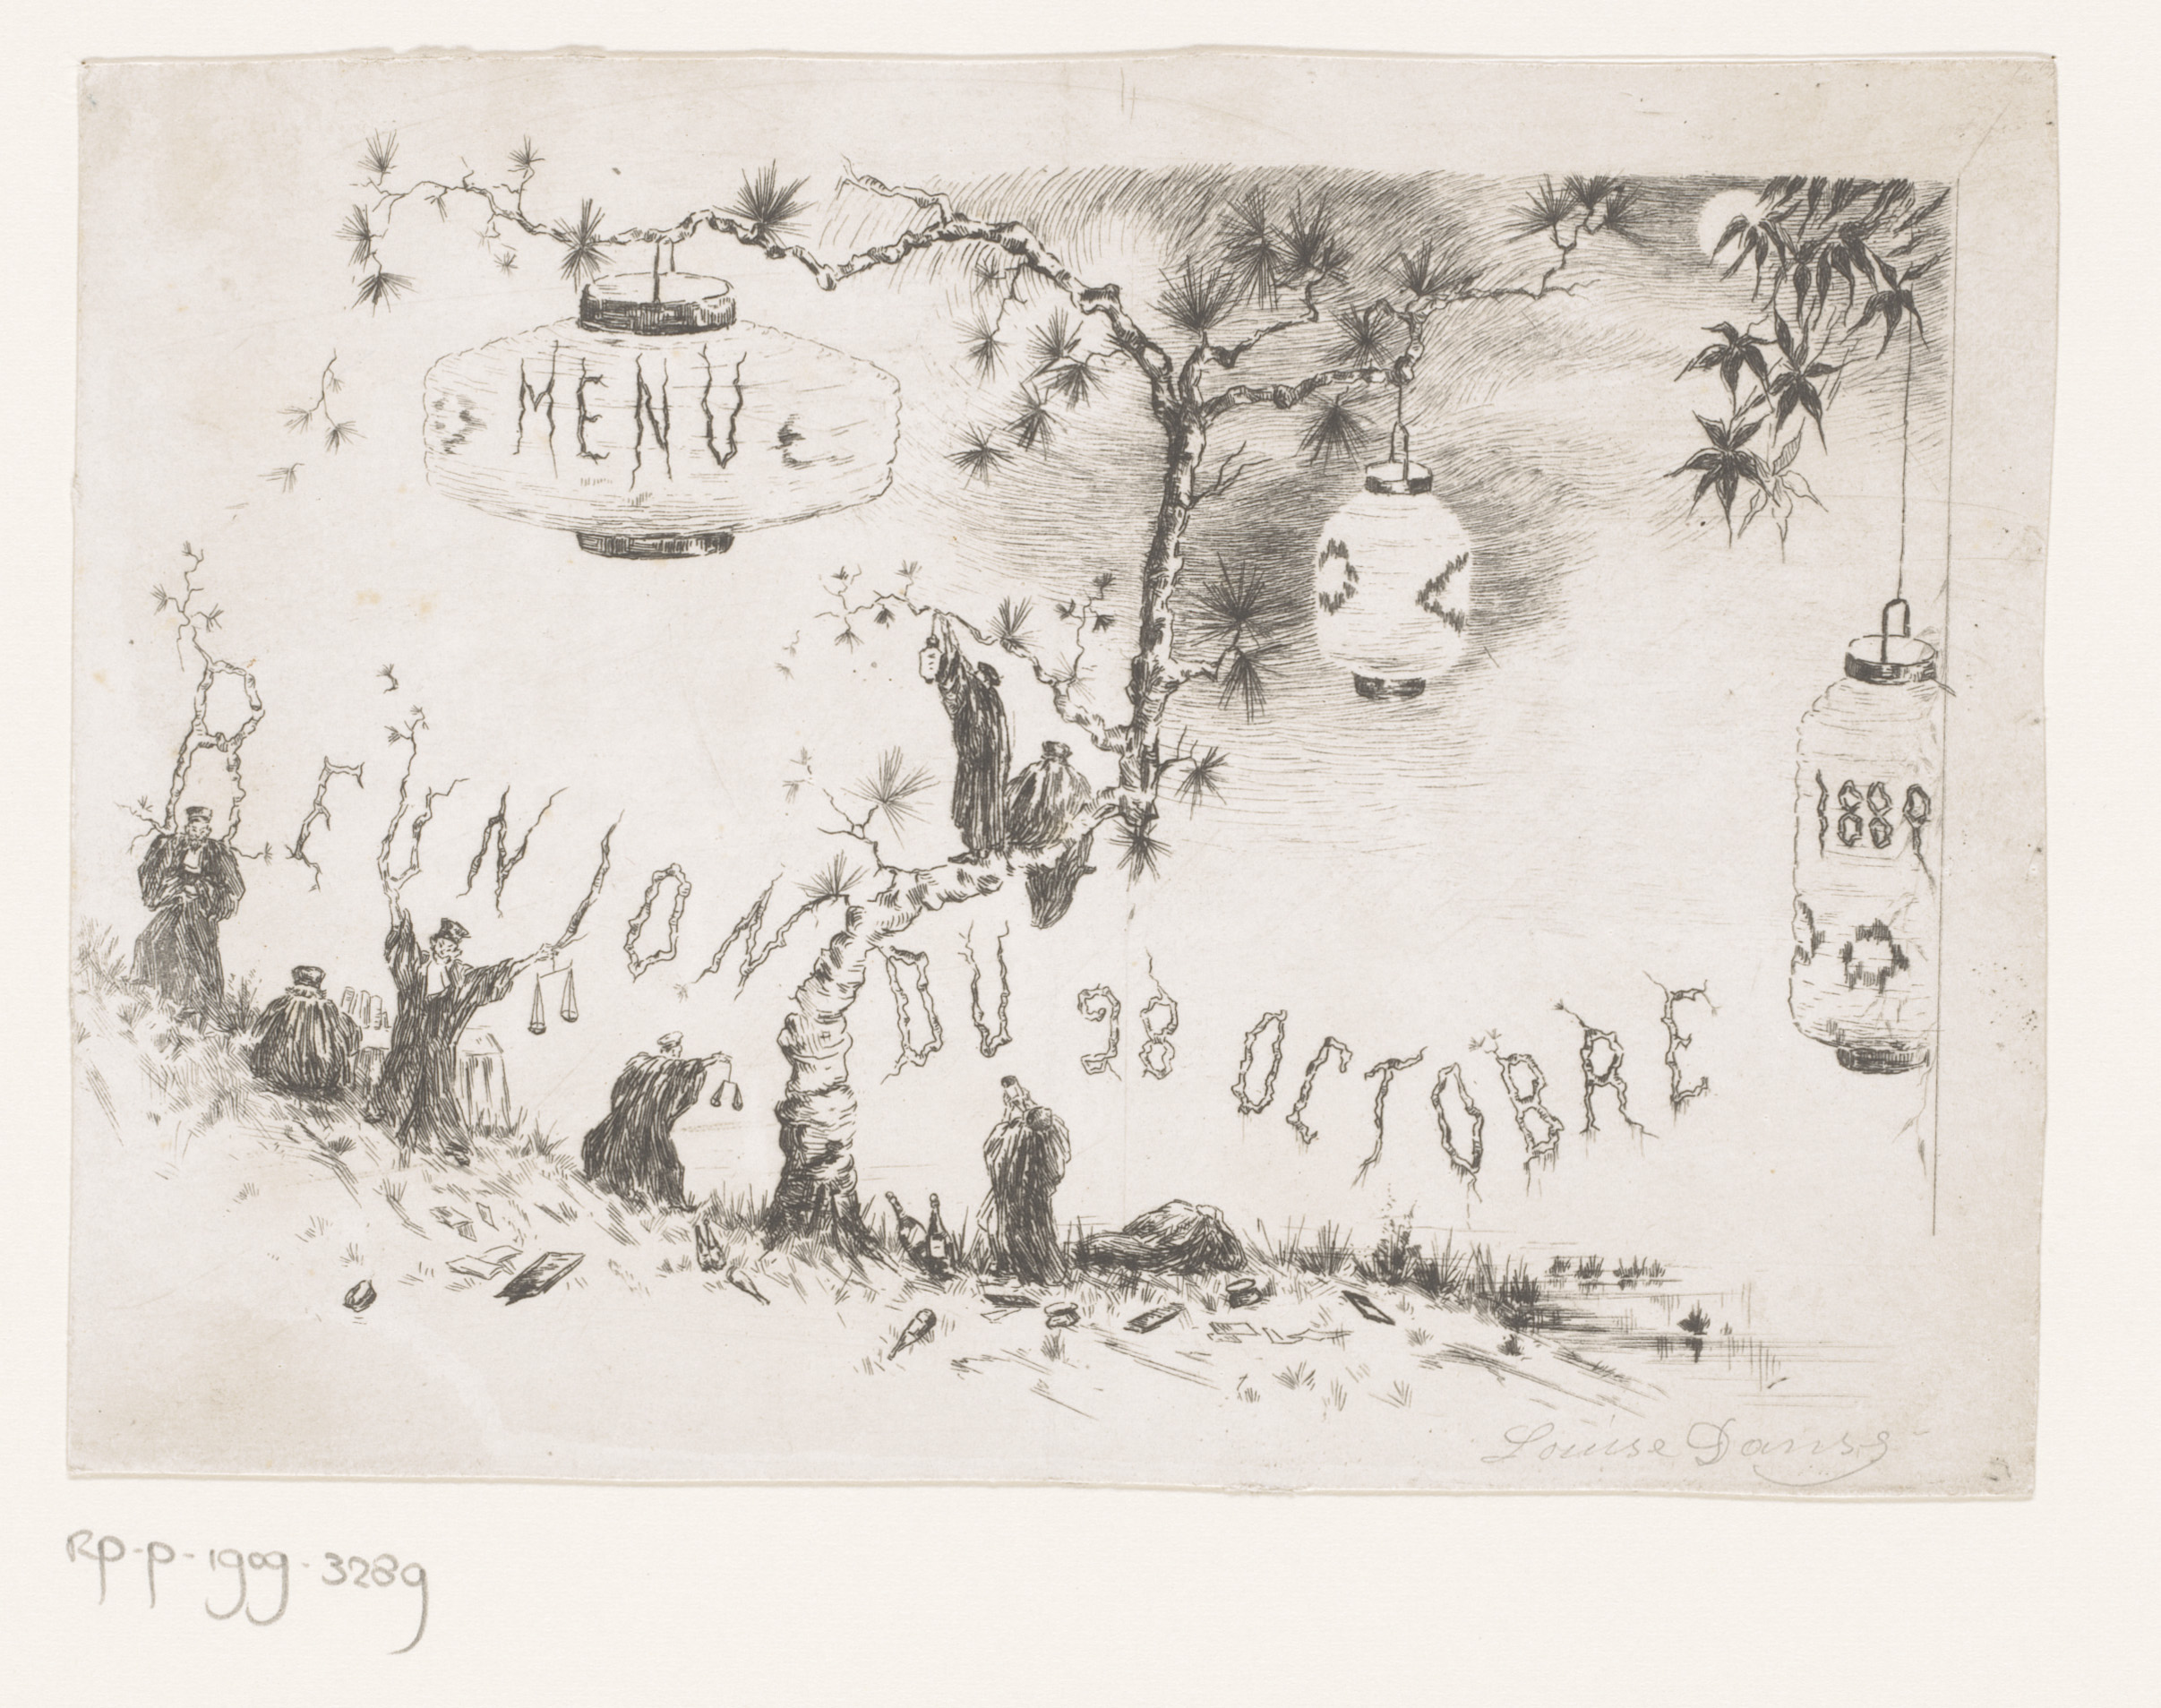 MENU
1889
REUNION DU 28 OCTOBRE
Louise Danse
RP-P-1909-3289